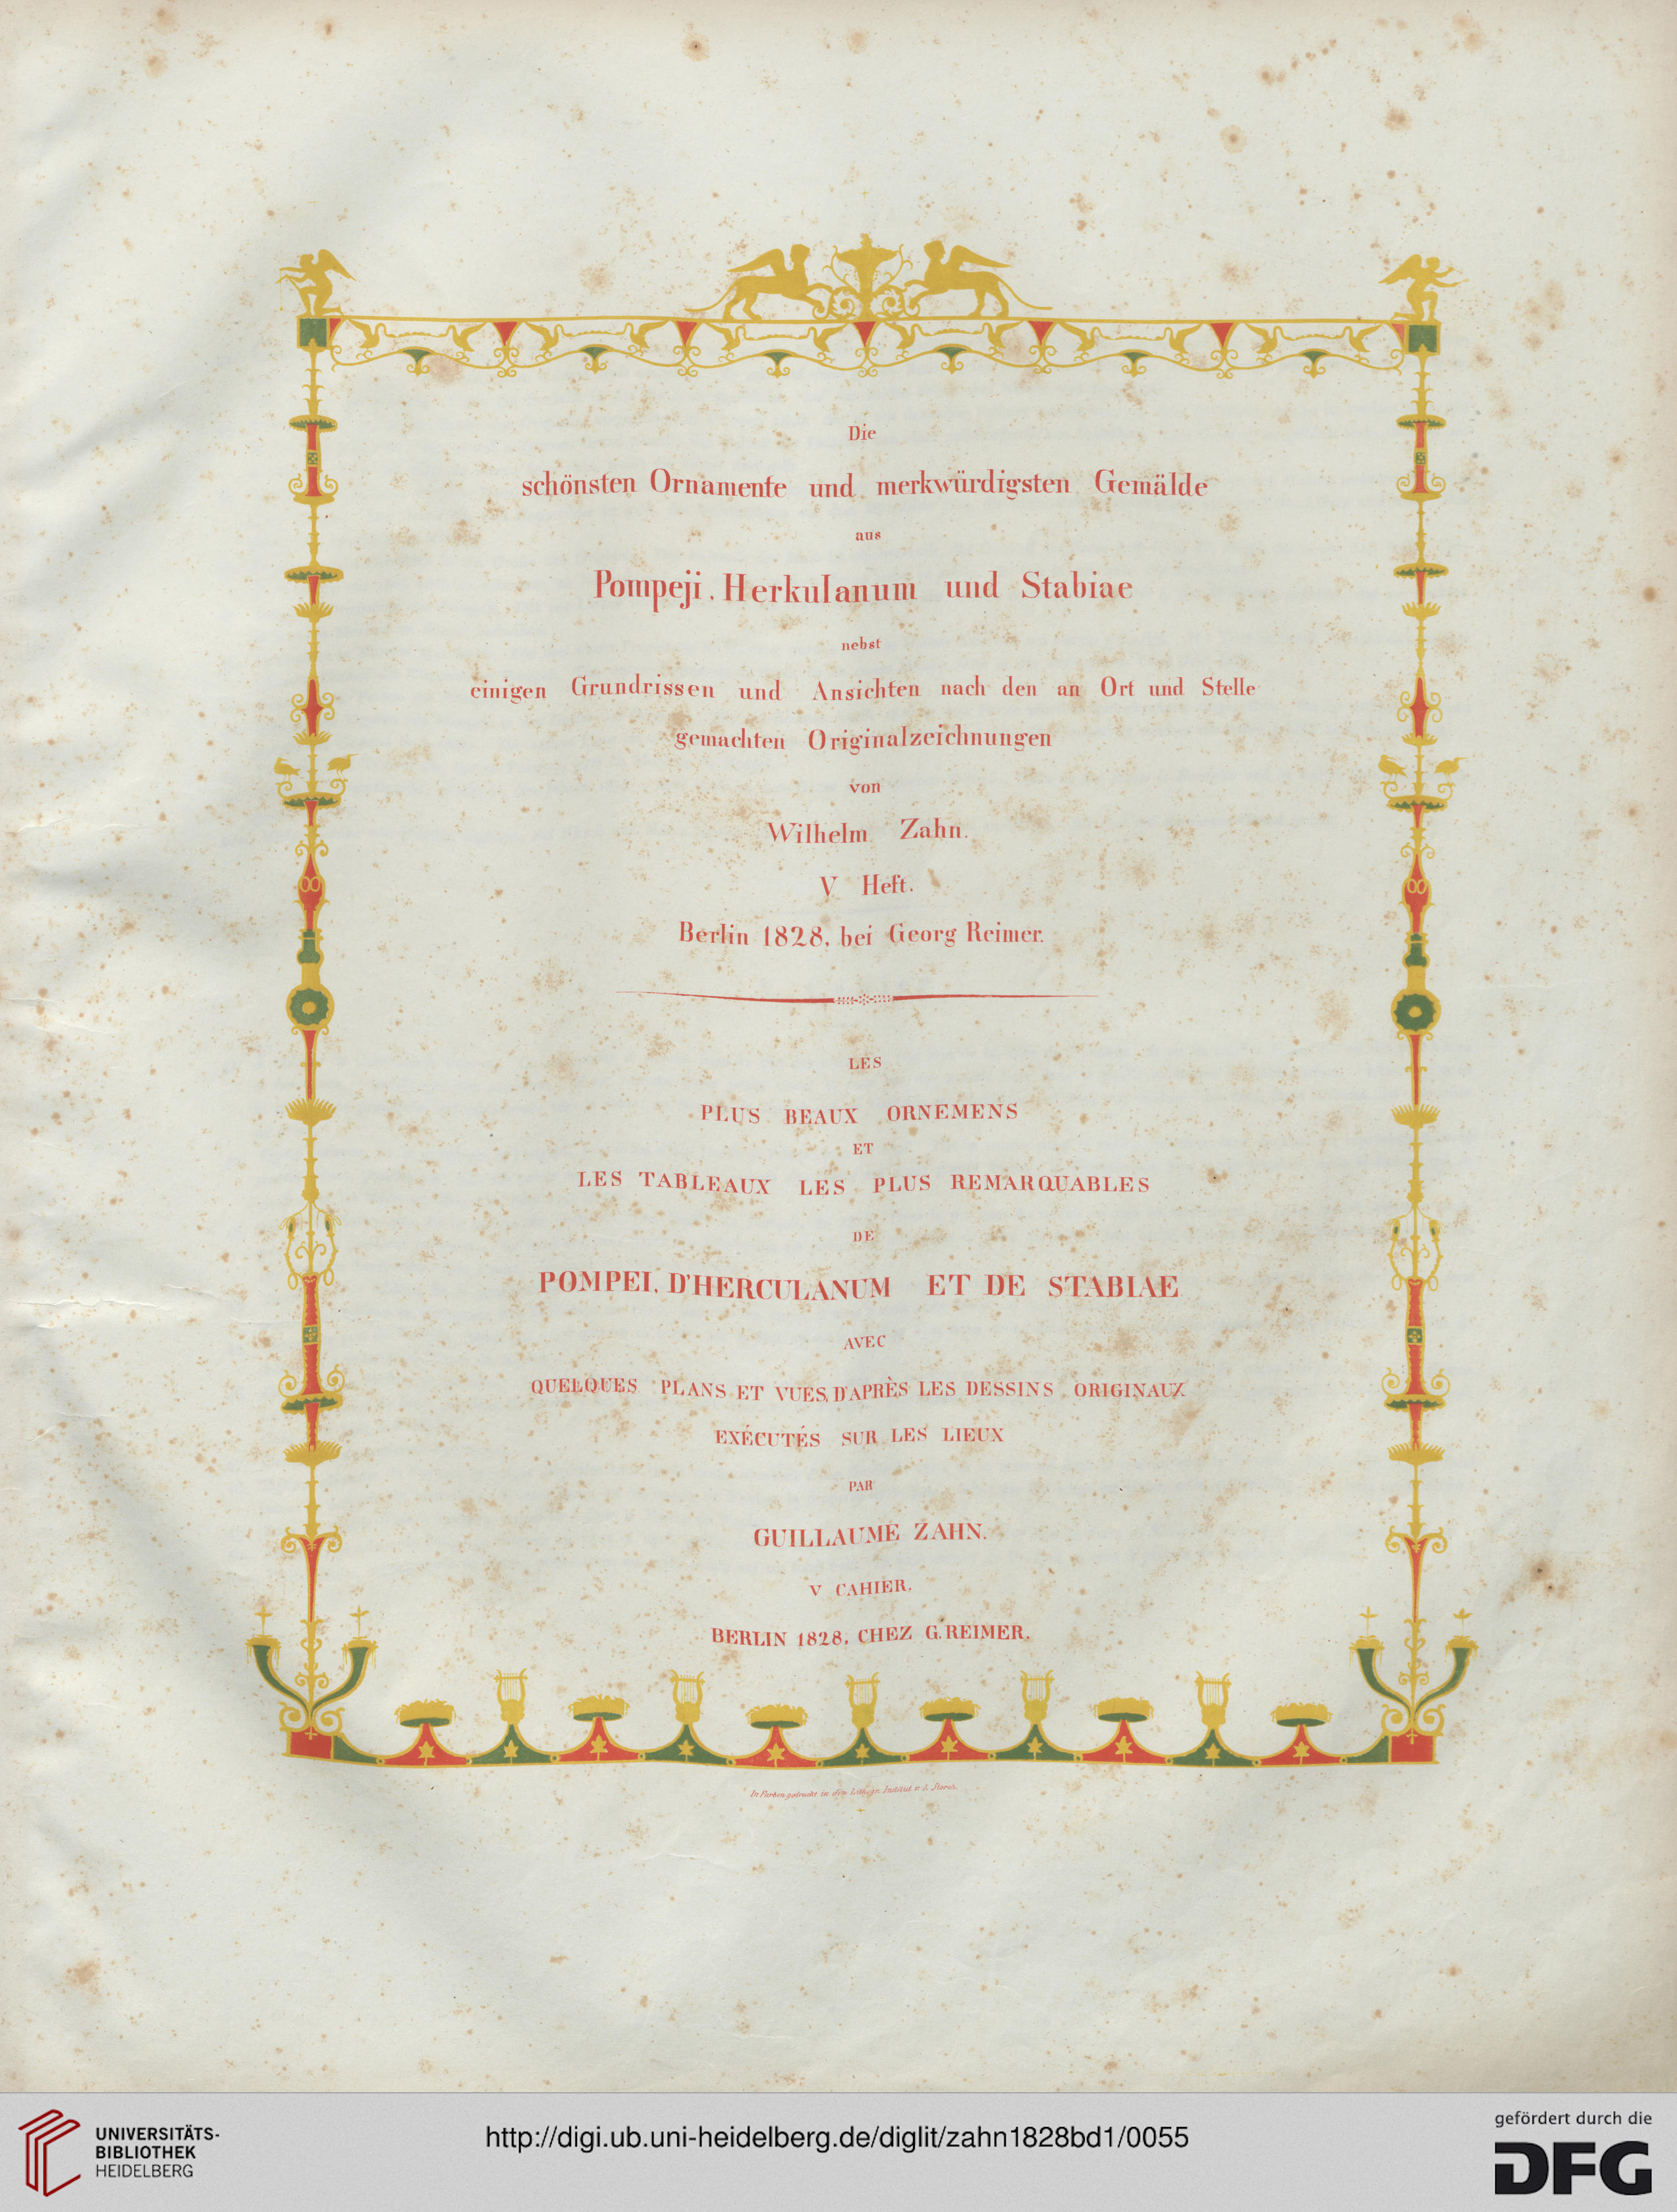 Die
schönsten Ornamente und merkwürdigsten Gemälde
aus
Pompeji, Herkulanum und Stabiae
nebst
einigen Grundrissen und Ansichten nach den an Ort und Stelle
gemachten Originalzeichnungen
von
Wilhelm Zahn.
V Heft.
Berlin 1828, bei Georg Reimer.
LES
PLUS BEAUX ORNEMENS
ET
LES TABLEAUX LES PLUS REMARQUABLES
DE
POMPEI, D'HERCULANUM ET DE STABIAE
AVEC
QUELQUES PLANS ET VUES, D'APRÈS LES DESSINS ORIGINAUX
EXÉCUTÉS SUR LES LIEUX
PAR
GUILLAUME ZAHN.
V CAHIER.
BERLIN 1828. CHEZ G. REIMER.
In Farben gedruckt in dem Lithogr. Institut v. L. Storch.
UNIVERSITÄTS-
BIBLIOTHEK
HEIDELBERG
http://digi.ub.uni-heidelberg.de/diglit/zahn1828bd1/0055
gefördert durch die
DFG